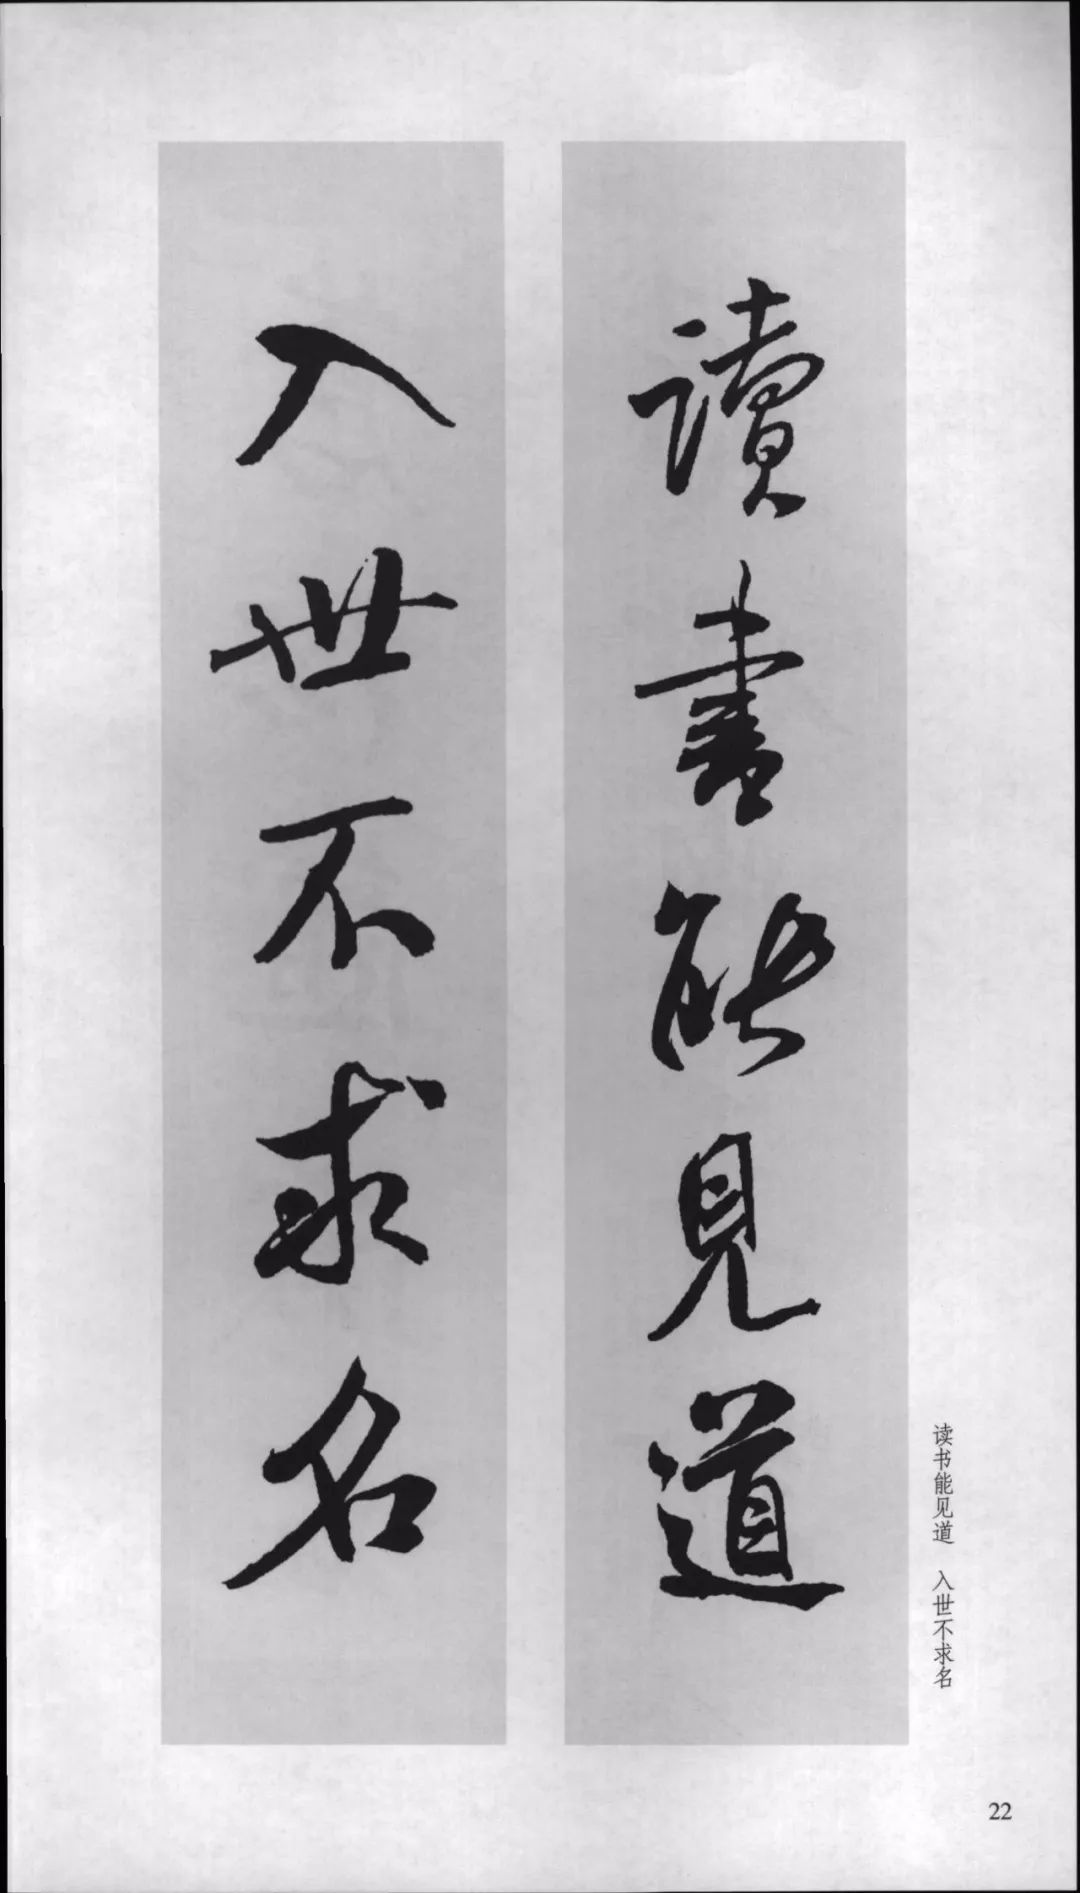 讀書能見道
入世不求名
读书能见道　入世不求名
22